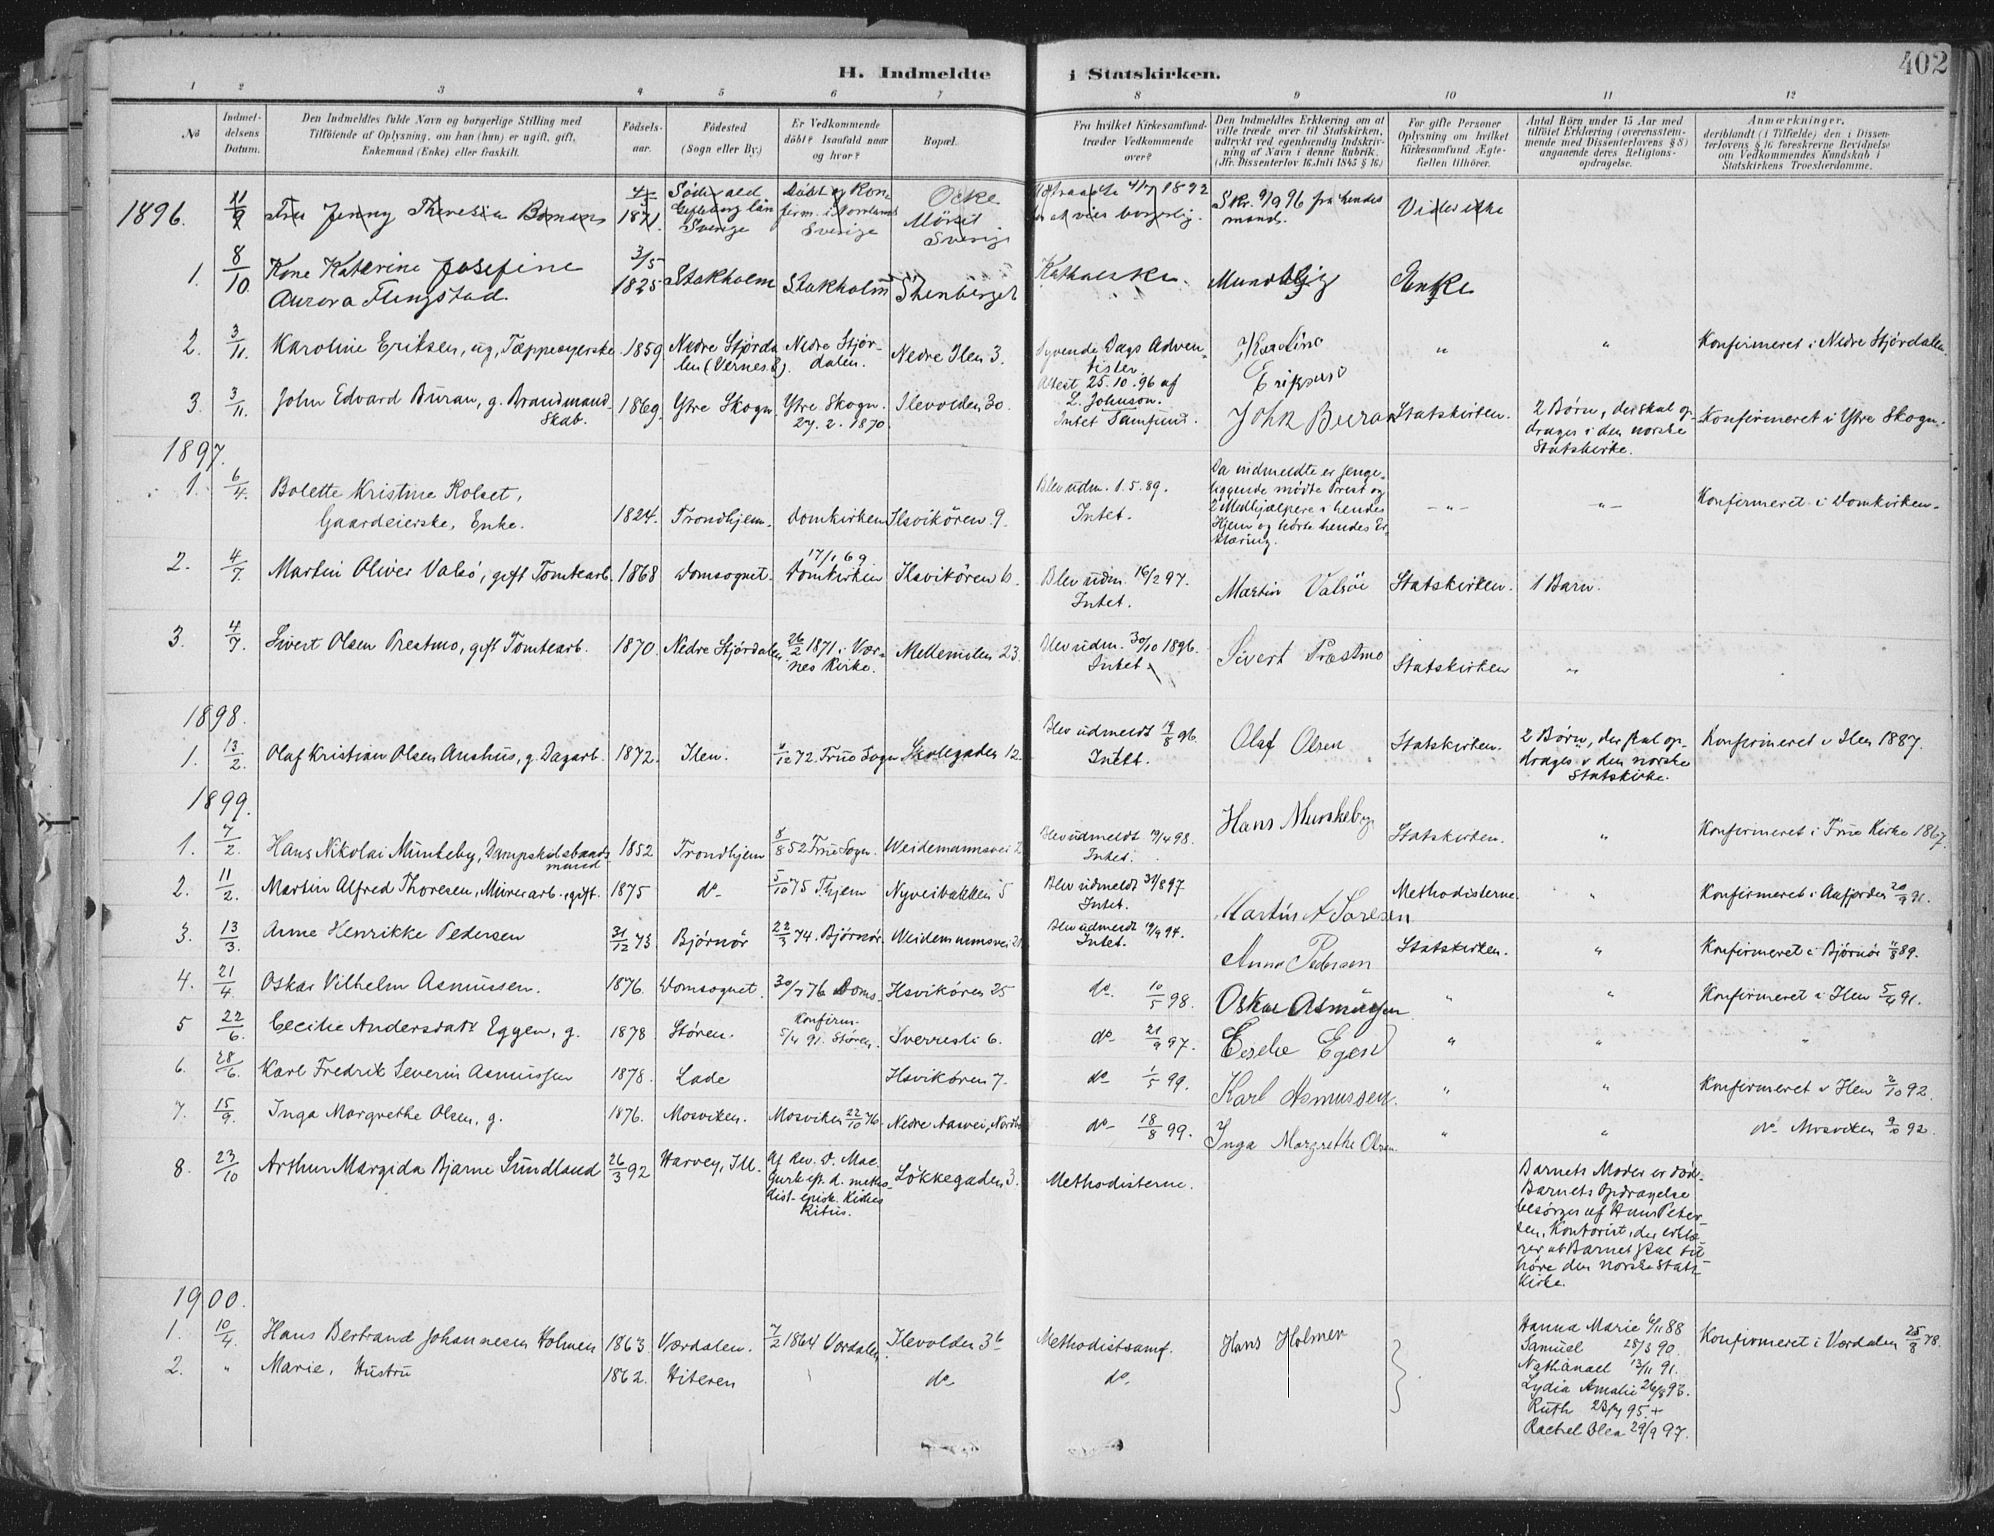 402
H. Indmeldte i Statskirken.
1 2 3 4 5 6 7 8 9 10 11 12
No
Indmel-
delsens
Datum.
Den Indmeldtes fulde Navn og borgerlige Stilling med
Tilföiende af Oplysning, om han (hun) er ugift, gift,
Enkemand (Enke) eller fraskilt.
Födsels-
aar.
Födested
(Sogn eller By.)
Er Vedkommende
döbt? Isaafald naar
og hvor?
Bopæl.
Fra hvilket Kirkesamfund
træder Vedkommende
over?
Den Indmeldtes Erklæring om at
ville træde over til Statskirken,
udtrykt ved egenhændig Indskriv-
ning af Navn i denne Rubrik.
(Jfr. Dissenterlov 16 Juli 1845 § 16.)
For gifte Personer
Oplysning om hvilket
Kirkesamfund Ægte-
fællen tilhörer.
Antal Börn under 15 Aar med
tilföiet Erklæring (overensstem-
mende med Dissenterlovens § 8)
angaaende deres Religions-
opdragelse.
Anmærkninger,
deriblandt (i Tilfælde) den i Dissen-
terlovens § 16 foreskrevne Bevidnelse
om Vedkommendes Kundskab i
Statskirkens Troeslærdomme.
1896. 11/9 Fru Jenny Theresia 1871. Sverige Döbt og Konfirm. i Norrland Sverige Sverige 4/7 1892 borgerlig. Skr. 9/9 96 fra hendes mand.
1. 8/10 Kone Katerine Josefine
Aurora Flingstad 3/5 1825 Stokholm Stokholm Stenberget Katholske. Mundtlig Enke
2. 3/11. Karoline Eriksen, ug, Tæppesyerske 1859 Nedre Stjørda
len (Vernes S.). Nedre Stjør-
dalen. Nedre Ilen 3. Syvende Dags Adven-
tister.
Attest 25.10.96 af
L. Johnson. Karoline
Eriksen " " Konfirmeret i Nedre Stjørdalen.
3. 3/11. John Edvard Buran, g. Brandmand
Skab. 1869. Ytre Skogn Ytre Skogn.
27.2.1870. Ilevolden 30. Intet Samfund. John Buran Statskirken. 2 Børn, der skal op-
drages i den norske
Statskirke. Konfirmeret i Ytre Skogn.
1897.
1. 6/4. Bolette Kristine Kolset,
Gaardeierske, Enke. 1824. Trondhjem. Domkirken Ilsvikören 9. Blev udm. 1.5.89.
Intet. Da indmeldte er senge-
liggende mødte Prest og
2 Medhjælpere i hendes
Hjem og hørte hendes Er-
klæring. -"- -"- Konfirmeret i Domkirken.
2. 4/7. Martin Oliver Valsö, gift Tomtearb. 1868 Domsognet. 17/1 69
Domkirken Ilsvikören 6. Blev udm. 16/2 97.
Intet. Martin Valsöe Statskirken. 1 Barn.
3. 4/7. Sivert Olsen Prestmo, gift Tomtearb. 1870. Nedre Stjørdalen 26/2 1871 i Vær-
nes Kirke. Mellemilen 23. Blev udm. 30/10 1896.
Intet. Sivert Præstmo Statskirken "
1898.
1. 13/2. Olaf Kristian Olsen Aushus, g. Dagarb. 1872. Ilen. 72. Frue Sogn Skolegaden 12. Blev udmeldt 19/8 96.
Intet. Olaf Olsen Statskirken. 2 Børn, der skal op-
drages i den norske
Statskirke. Konfirmeret i Ilen 1887.
1899.
1. 7/2. Hans Nikolai Munkeby, Dampskibsbaads
mand 1852 Trondhjem 8/8 52 Frue Sogn. Weidemannsvei 2 Blev udmeldt 98.
Intet. Hans Munkeby Statskirken. " Konfirmeret i Frue Kirke 1867.
2. 11/2. Martin Alfred Thoresen, Murerarb., gift. 1875 do 5/10 75 Thjem Nyveibakken 5 Blev udmeldt 31/8 97.
Intet. Martin A Toresen Methodisterne. " Konfirmeret i Aafjorden 20/9 91.
3. 13/3. Anne Henrikke Pedersen 31/12 73 Bjørnör 22/3 74. Bjørnør. Weidemannsvei 21 Blev udmeldt 94.
Intet. Anna Pedersen Statskirken. " Konfirmeret i Bjørnör 89.
4. 21/4. Oskar Vilhelm Asmussen. 1876. Domsognet. 30/7 76 Doms. Ilsvikören 25 do. 10/5 98. Oskar Asmussen " " Konfirmeret i Ilen 5/4 91.
5 22/6. Cecilie Andersdatr Eggen, g. 1878 Støren. Konfirm.
5/4 91. Støren. Sverresli 6. do 21/9 97. Ceselie Egen " " "
6. 28/6. Karl Fredrik Severin Asmussen 1878. Lade Ilsvikören 7. do 1/5 99. Karl Asmussen. " " Konfirmeret i Ilen 2/10 92.
7. 15/9. Inga Margrethe Olsen, g. 1876. Mosviken. Mosviken 22/10 76. Nedre Aasvei, do 18/8 99. Inga Margrethe Olsen " " do Mosviken 9/10 92.
8. 23/10 Arthur Margido Bjarne Sundland 26/3 92 Harvey, Ill. Af Rev. D. Mac.
Gurk eft. d. metho-
dist-episk. Kirkes
Ritus. Løkkegaden 3. Methodisterne. Barnets Moder er død.
Barnets Opdragelse
besørges af Hans Peter-
sen, Kontorist, der erklæ-
rer at Barnet skal til-
høre den norske Stats-
kirke.
1900.
1. 10/4. Hans Bertrand Johannesen Holmen 1863. Værdalen. 7/2 1864 Værdalen Ilevolden 36 Methodistsamf. Hans Holmen Hanna Marie 6/11 88 Konfirmeret i Værdalen 25/8 78.
2. " Marie, Hustru 1862. Hiteren do do. Samuel 28/3 90.
Nathanael 13/11 91.
Lydia Amalie 26/8 93.
Ruth 23/4 95. +
Rachel Olea 29/9 97.